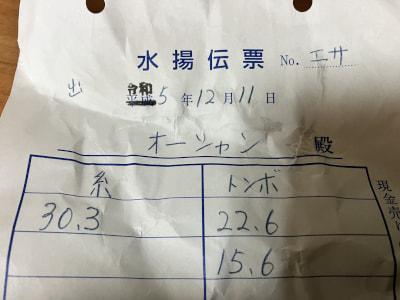 水揚伝票 No. エサ
出 令和 5年12月11日
オーシャン 殿
糸 トンボ
30.3 22.6
15.6
現金売